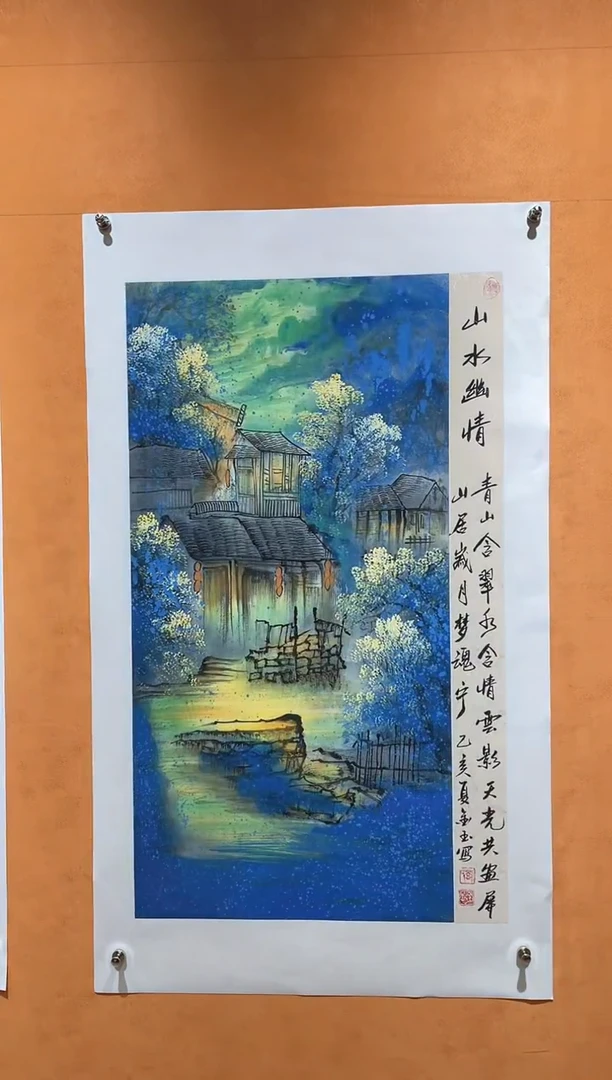 山水幽情
青山含翠水含情雲影天光共画屏
山居岁月梦魂宁 乙亥夏金玉写